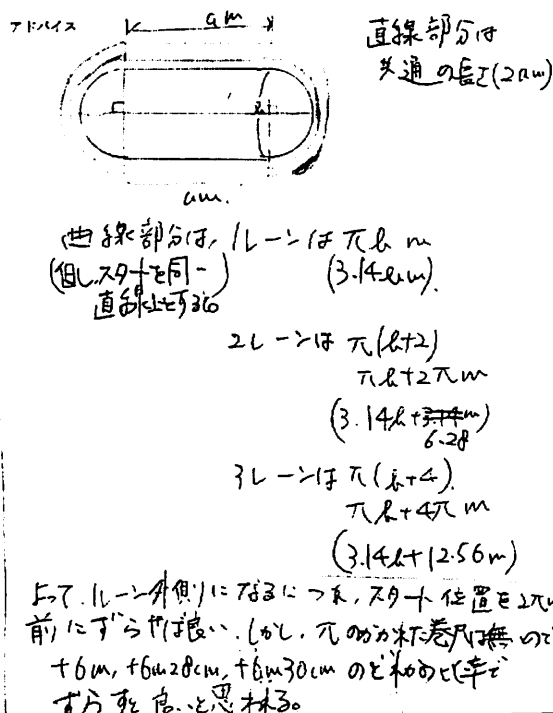 アドバイス
a m
直線部分は
共通の長さ(2am)
a m.
曲線部分は, 1レーンは πb m
(但し、スタートを同一 (3.14b m).
直線上とする)
2レーンは π(b+2)
πb+2π m
(3.14b+3.14m)
6.28
3レーンは π(b+4).
πb+4π m
(3.14b+12.56m)
よって、1レーン外側りになるにつれ、スタート位置を2πm
前にずらせば良い。しかし、πのかかれた巻尺は無いので
+6m, +6m28cm, +6m30cm のどれかの比率で
ずらすと良いと思われる。